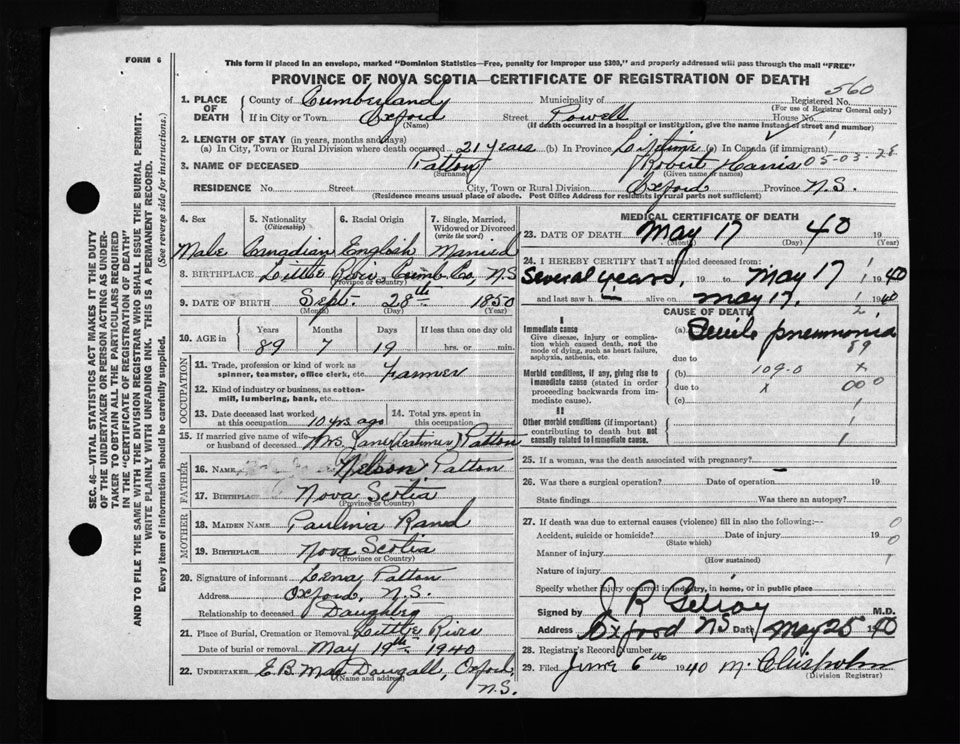 FORM 6
This form if placed in an envelope, marked "Dominion Statistics—Free, penalty for improper use $300," and properly addressed will pass through the mail "FREE"
PROVINCE OF NOVA SCOTIA—CERTIFICATE OF REGISTRATION OF DEATH
560
1. PLACE OF DEATH { County of Cumberland Municipality of Registered No.
(For use of Registrar General only)
If in City or Town Oxford Street Powell House No.
(Name) (If death occurred in a hospital or institution, give the name instead of street and number)
2. LENGTH OF STAY (in years, months and days)
(a) In City, Town or Rural Division where death occurred 21 years (b) In Province Lifetime (c) In Canada (if immigrant)
3. NAME OF DECEASED Patton Robert Harris 05-03-28
(Surname) (Given name or names)
RESIDENCE No. Street City, Town or Rural Division Oxford Province N.S.
(Residence means usual place of abode. Post Office Address for residents in rural parts not sufficient)
4. Sex 5. Nationality (Citizenship) 6. Racial Origin 7. Single, Married, Widowed or Divorced (write the word)
Male Canadian English Married
8. BIRTHPLACE Little River, Cumb. Co., N.S
(Province or Country)
9. DATE OF BIRTH Sept. 28th 1850
(Month) (Day) (Year)
10. AGE in Years Months Days If less than one day old
89 7 19 hrs. or min.
OCCUPATION
11. Trade, profession or kind of work as spinner, teamster, office clerk, etc. Farmer
12. Kind of industry or business, as cotton-mill, lumbering, bank, etc.
13. Date deceased last worked at this occupation 10 yrs. ago 14. Total yrs. spent in this occupation
15. If married give name of wife or husband of deceased Mrs. Patton
FATHER
16. NAME Nelson Patton
17. BIRTHPLACE Nova Scotia
(Province or Country)
MOTHER
18. MAIDEN NAME Paulina Rand
19. BIRTHPLACE Nova Scotia
(Province or Country)
20. Signature of informant Lena Patton
Address Oxford, N.S.
Relationship to deceased Daughter
21. Place of Burial, Cremation or Removal Little River
Date of burial or removal May 19th 1940
22. UNDERTAKER E.B. MacDougall, Oxford, N.S.
(Name and address)
MEDICAL CERTIFICATE OF DEATH
23. DATE OF DEATH May 17 40
(Month) (Day) (Year)
24. I HEREBY CERTIFY that I attended deceased from:
Several years, 19 to May 17 1940
and last saw h alive on May 17. 1940
CAUSE OF DEATH
I
Immediate cause (a) Senile pneumonia
Give disease, injury or complication which caused death, not the mode of dying, such as heart failure, asphyxia, asthenia, etc.
89
due to
Morbid conditions, if any, giving rise to immediate cause (stated in order proceeding backwards from immediate cause).
(b) 109-0 x
due to x 000
(c)
II
Other morbid conditions (if important) contributing to death but not causally related to immediate cause.
25. If a woman, was the death associated with pregnancy?
26. Was there a surgical operation? Date of operation 19
State findings Was there an autopsy?
27. If death was due to external causes (violence) fill in also the following:—
Accident, suicide or homicide? Date of injury 19
(State which)
Manner of injury
(How sustained)
Nature of injury
Specify whether injury occurred in industry, in home, or in public place
Signed by J R Gilroy M.D.
Address Oxford NS Date May 25 1940
28. Registrar's Record Number
29. Filed June 6th 1940 M. Chisholm
(Division Registrar)
SEC. 46—VITAL STATISTICS ACT MAKES IT THE DUTY
OF THE UNDERTAKER OR PERSON ACTING AS UNDER-
TAKER TO OBTAIN ALL THE PARTICULARS REQUIRED
IN THE "CERTIFICATE OF REGISTRATION OF DEATH"
AND TO FILE THE SAME WITH THE DIVISION REGISTRAR WHO SHALL ISSUE THE BURIAL PERMIT.
WRITE PLAINLY WITH UNFADING INK. THIS IS A PERMANENT RECORD.
Every item of information should be carefully supplied. (See reverse side for instructions.)